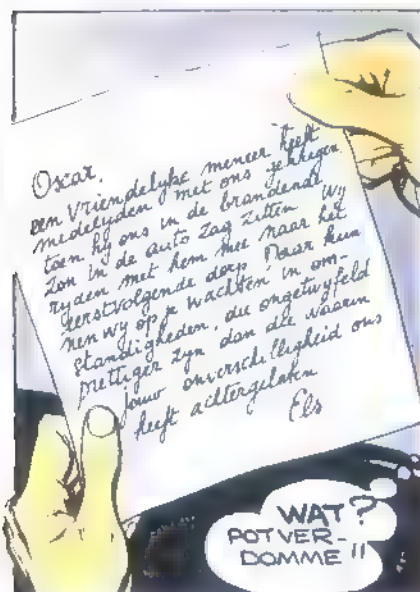 Oscar,
een vriendelyke meneer heeft
medelyden met ons gekregen
toen hy ons in de brandende
zon in de auto zag zitten Wy
ryden met hem mee naar het
eerstvolgende dorp Daar kun
nen wy op je wachten in om-
standigheden, die ongetwyfeld
prettiger zyn dan die waarin
jouw onverschilligheid ons
heeft achtergelaten
Els
WAT?
POTVER-
DOMME!!